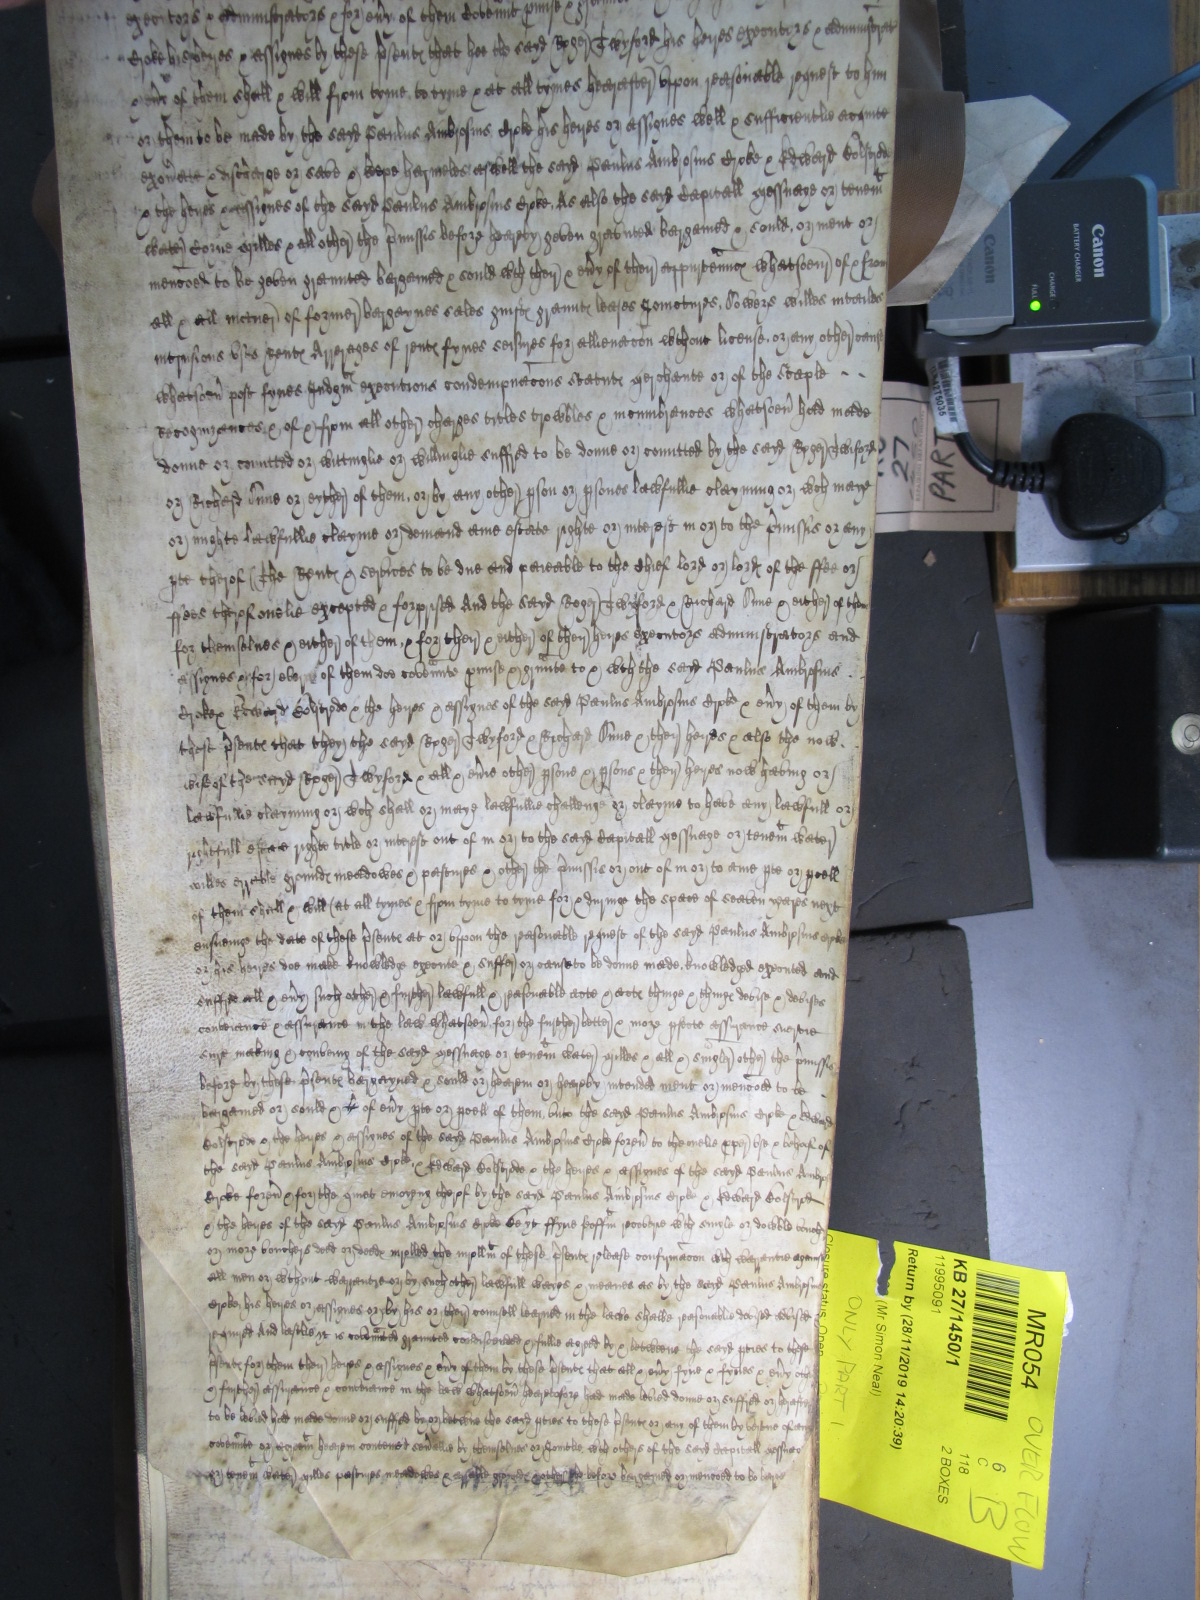 executors & administrators & for eny of them Covenit pmise &
Croke his heyres & assignes by these psents that hee the sayd Roger Twyford his heyres executors & administrat
& eny of them shall & will from tyme to tyme & at all tymes hearafter uppon reasonable request to him
or them to be made by the sayd Paulus Ambrosius Croke his heyres or assignes well & sufficientlie acquite
exonerate & discharge or save & kepe harmeles aswell the sayd Paulus Ambrosius Croke & Edward Bolstrode
& the heyres & assignes of the sayd Paulus Ambrosius Croke. As also the sayd Capitall Messuage or tenemt
water Corne Milles & all other the pmissis before hereby geven graunted bargained & sould, or ment or
mencoed to be geven graunted bargained & sould wth their & eny of their apptennces whatsoevr of & from
all & all maner of former bargaynes sales guifts graunts leases Joyntures, Dowers Willes intailes
intrusions uses Rents Arrerages of rents fynes seisures for allienacon without license, or any other cause
whatsoevr post fynes Judgmts executions condempnacons Statuts Merchante or of the Staple - -
Recognizances, & of & from all other charges titles trowbles & incumbrances whatsoevr had made
donne or comitted or wittinglie or willinglie suffred to be donne or comitted by the sayd Roger Twiford
or Richard Anne or eyther of them, or by any other pson or psones lawfullie clayming or wch maye
or mighte lawfullie clayme or demaund anie estate righte or interest in or to the pmissis or any
pte therof (The Rents & services to be due and payable to the chief lord or lords of the ffee or
ffees therof onelie excepted & forprised And the sayd Roger Twyford & Richard Anne & either of them
for themselves & either of them, & for their & either of their heyres executors administrators and
assignes & for every of them doe covenante pmise & graunte to & wth the sayd Paulus Ambrosius
Croke & Edward Bolstrode & the heyres & assignes of the sayd Paulus Ambrosius Croke & eny of them by
these psents that they the sayd Roger Twyford & Richard Anne & their heyres & also the now
wife of the sayd Roger Twyford & all & evrie other psone & psons & their heyres now having or
lawfullie clayming or wch shall or maye lawfullie challenge or clayme to have any lawfull or
rightfull estate righte title or interest out of in or to the sayd Capitall Messuage or tenemt water
milles arrable grounds meadowes & pastures & other the pmissis or out of in or to anie pte or pcell
of them shall & will (at all tymes & from tyme to tyme for & duringe the space of seaven yeares next
ensueinge the date of these psents at or uppon the reasonable request of the sayd Paulus Ambrosius Croke
or his heyres doe make knowledge execute & suffer or cause to be donne made, knowledged executed and
suffred all & eny such other & further lawfull & reasonable acte & acts thinge & things devise & devises
conveiance & assurance in the law whatsoevr, for the further better & more pfecte assurance suertie
sure making & conveing of the sayd Messuage or tenemt water Milles & all & singler other the pmissis
before by these psents bargayned & sould or hearin or hearby intended ment or mencoed to be
bargained or sould & of eny pte or pcell of them, unto the sayd Paulus Ambrosius Croke & Edward
Bolstrode & the heyres & assignes of the sayd Paulus Ambrosius Croke forevr to the onelie pper use & behoof of
the sayd Paulus Ambrosius Croke, & Edward Bolstrode & the heyres & assignes of the sayd Paulus Ambros
Croke forevr & for the quiet enioying therof by the sayd Paulus Ambrosius Croke & Edward Bolstrode
& the heyres of the sayd Paulus Ambrosius Croke be yt ffyne feoffmt recoverie wth single or dowble voucher
or more vouchers deed or deedes inrolled the inrollmt of these psents release confirmacon wth warrantie against
all men or without warrantie or by such other lawfull wayes & meanes as by the sayd Paulus Ambrosius
Croke, his heyres or assignes or by his or their counsell learned in the lawe shalbe reasonablie devised advised
required And lastlie it is covenanted graunted condiscended & fullie agreed by & betweene the sayd pties to these
psents for them their heyres & assignes & eny of them by these psents that all & eny fyne & fynes & eny other
& further assurance & conveiance in the lawe whatsoevr heartofore had made levied donne or suffred or hearafter
to be levied had made donne or suffred by or betwene the sayd pties to these psents or any of them by vertue of any
covenante or graunt hearin conteined severallie by themselves or joyntlie with others of the sayd Capitall Messuage
or tenemt water Milles pastures meadowes & arrable grounds & other the before bargained or mencoed to be barg
Canon
BATTERY CHARGER
CHARGE
FULL
Canon
27
PART
MR054
KB 27/1450/1
11995091
Return by (28/11/2019 14:20:39)
(Mr Simon Neal)
Closure status: Open
118
2 BOXES
6
C
B
OVER FLOW
ONLY PART 1